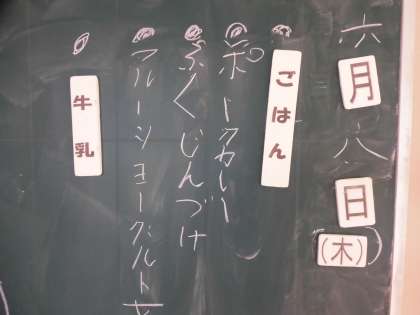 六月八日(木)
ごはん
ポークカレー
ふくじんづけ
フルーツヨーグルト
牛乳